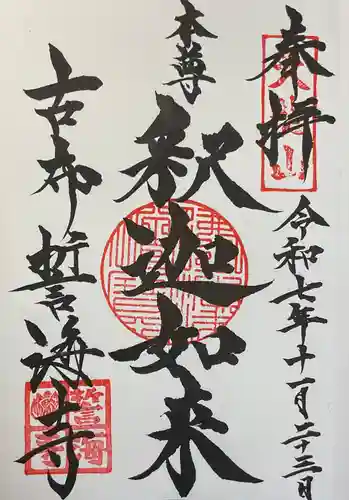 奉拝
令和七年十一月二十三日
本尊
釈迦如来
古布誓海寺
誓海寺